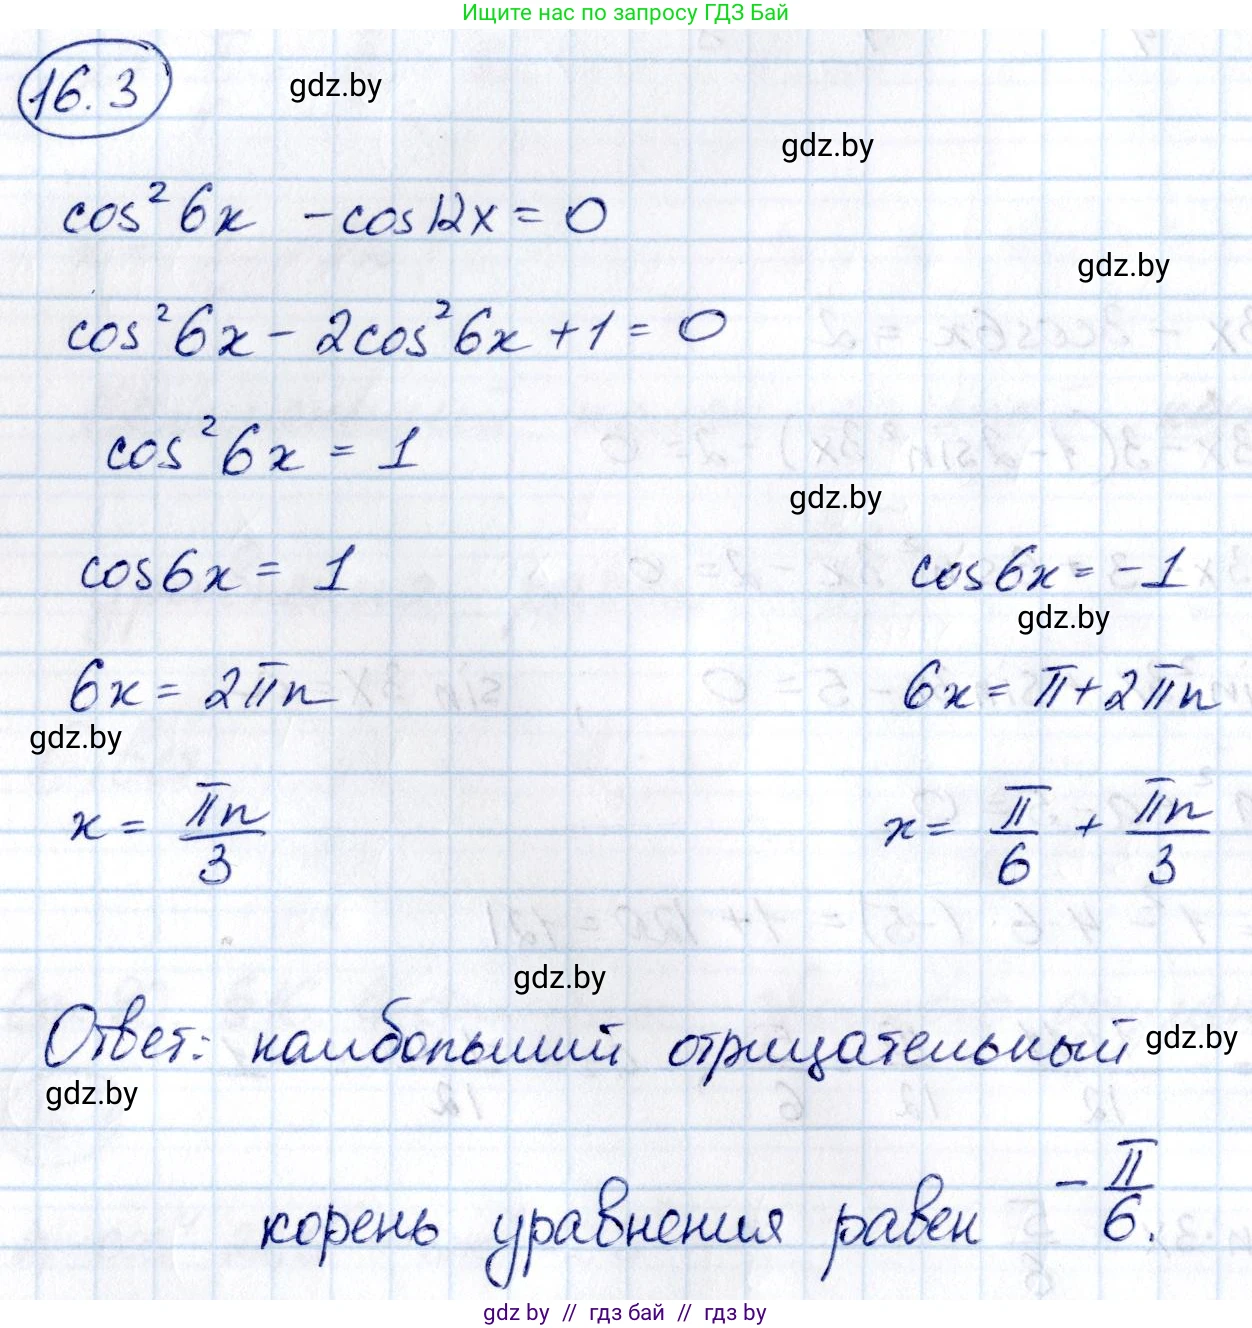 Ищите нас по запросу ГДЗ Бай
16.3
gdz.by
gdz.by
cos²6x - cos12x = 0
gdz.by
cos²6x - 2cos²6x + 1 = 0
cos²6x = 1
gdz.by
cos6x = 1 cos6x = -1
gdz.by
6x = 2πn 6x = π + 2πn
gdz.by
x = πn/3 x = π/6 + πn/3
gdz.by
Ответ: наибольший отрицательный
gdz.by
gdz.by
корень уравнения равен -π/6.
gdz by // гдз бай // гдз by